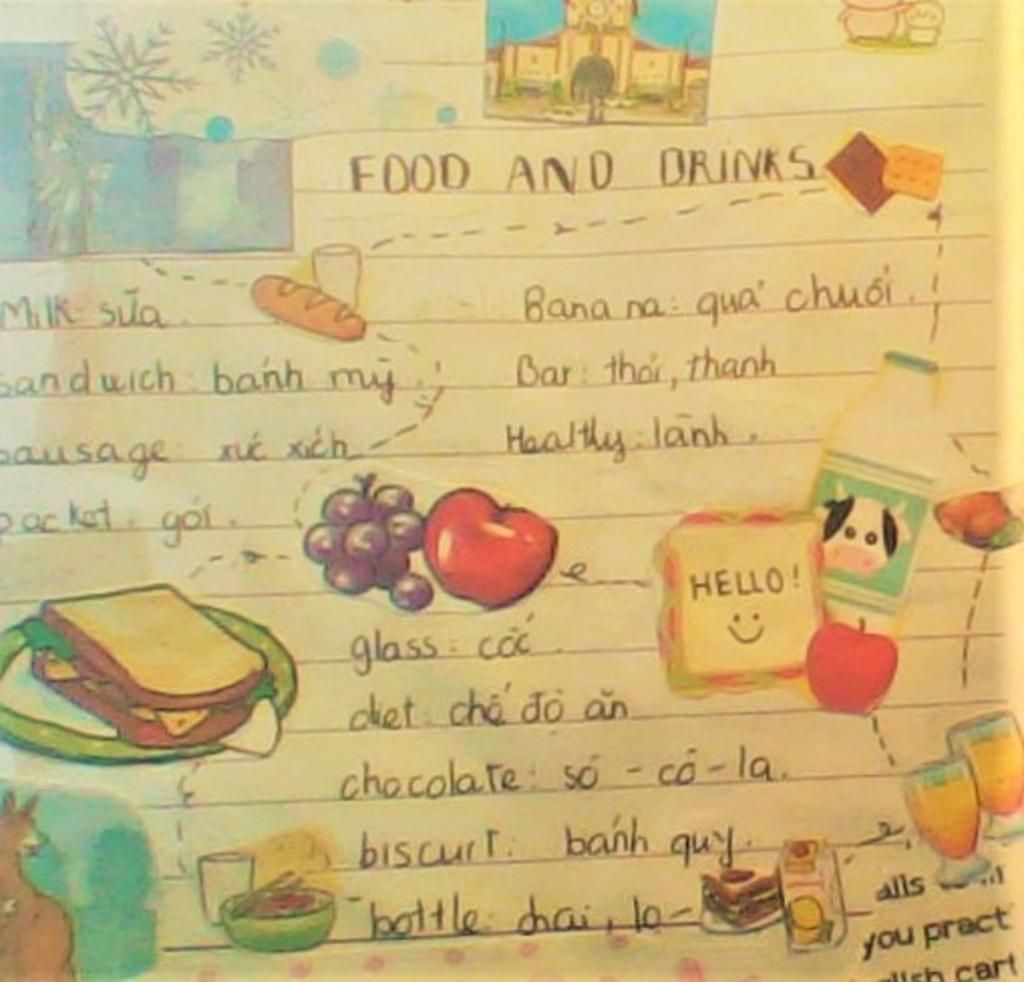 FOOD AND DRINKS
Milk: sữa
sandwich: bánh mỳ
sausage: xúc xích
packet: gói.
Banana: quả chuối.
Bar: thỏi, thanh
Healthy: lành.
HELLO!
glass: cốc
diet: chế độ ăn
chocolate: sô-cô-la.
biscuit: bánh quy.
bottle: chai, lọ
alls
you pract
lish cart